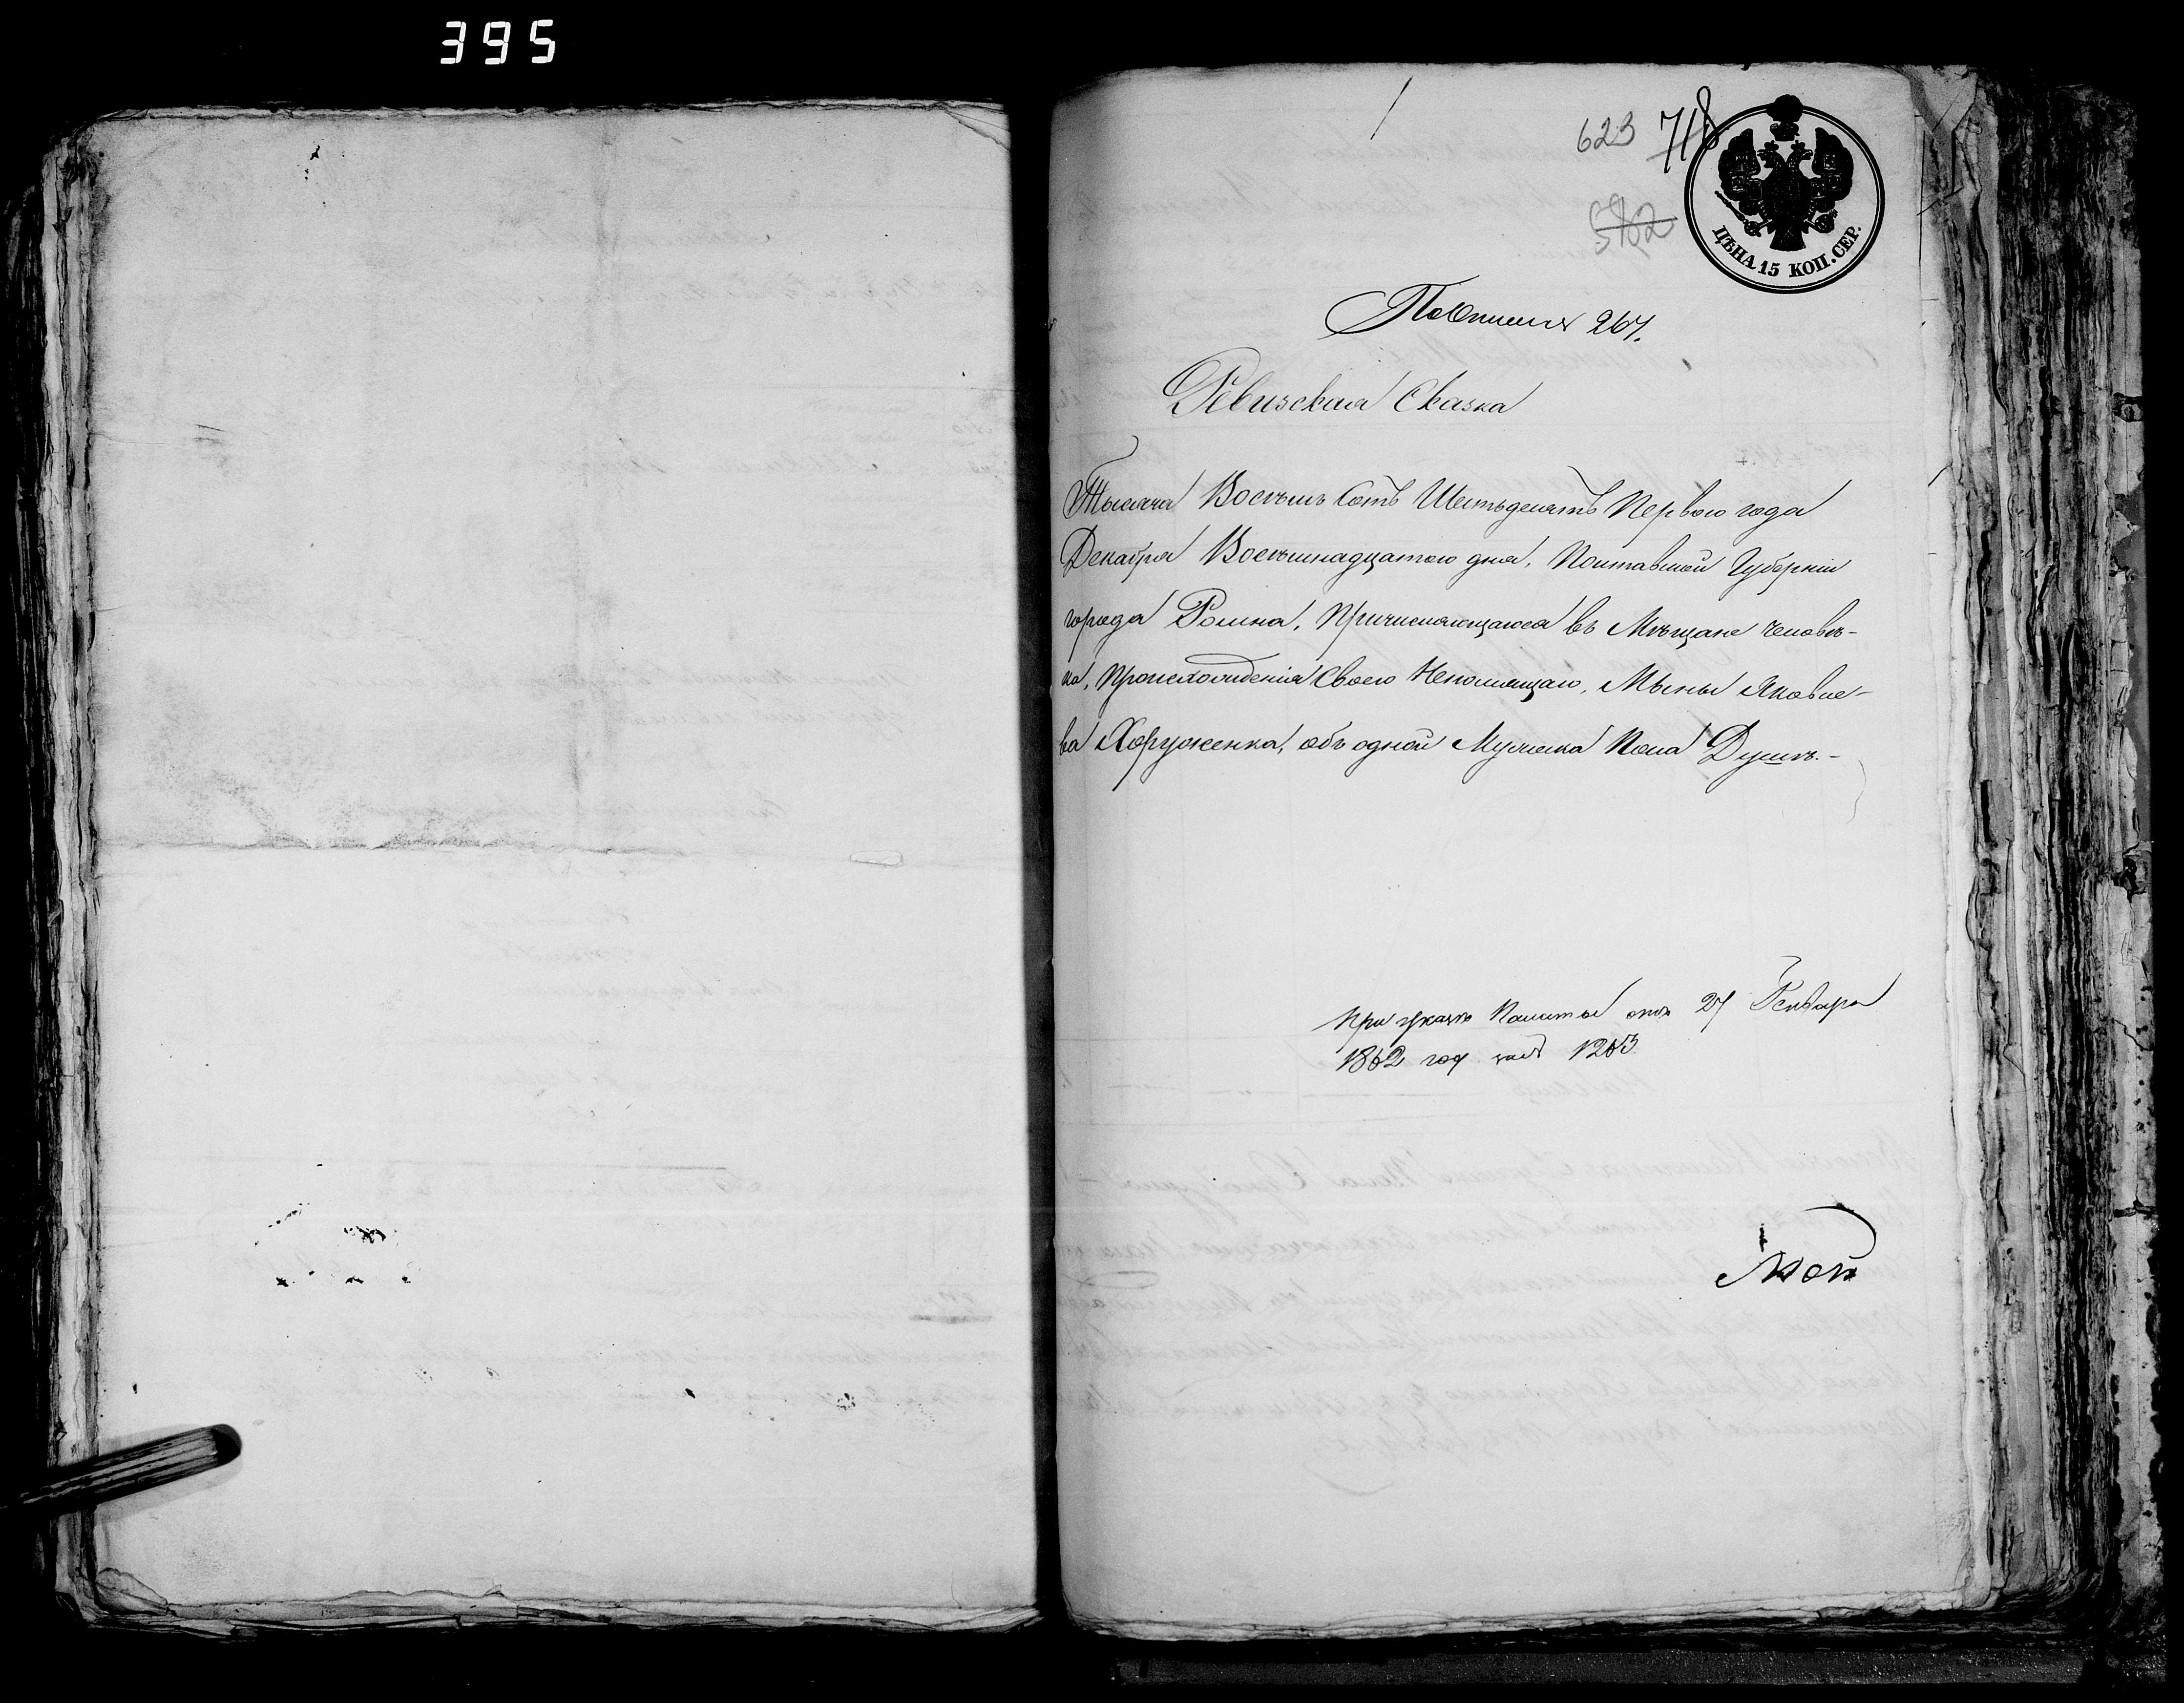 395
623 718
582
ЦѢНА 15 КОП. СЕР.
По Описи 267.
Ревизская Сказка
Тысяча Восемь Сотъ Шестьдесятъ Перваго года
Декабря Восемнадцатаго дня, Полтавской Губерніи
города Ромна, Причисляющагося въ Мѣщане человѣ-
ка, Происхожденія Своего Непомнящаго, Мины Яковле-
ва Хоруженка, объ одной Мужеска Пола Душѣ.-
При указѣ Палаты отъ 27 Генваря
1862 год